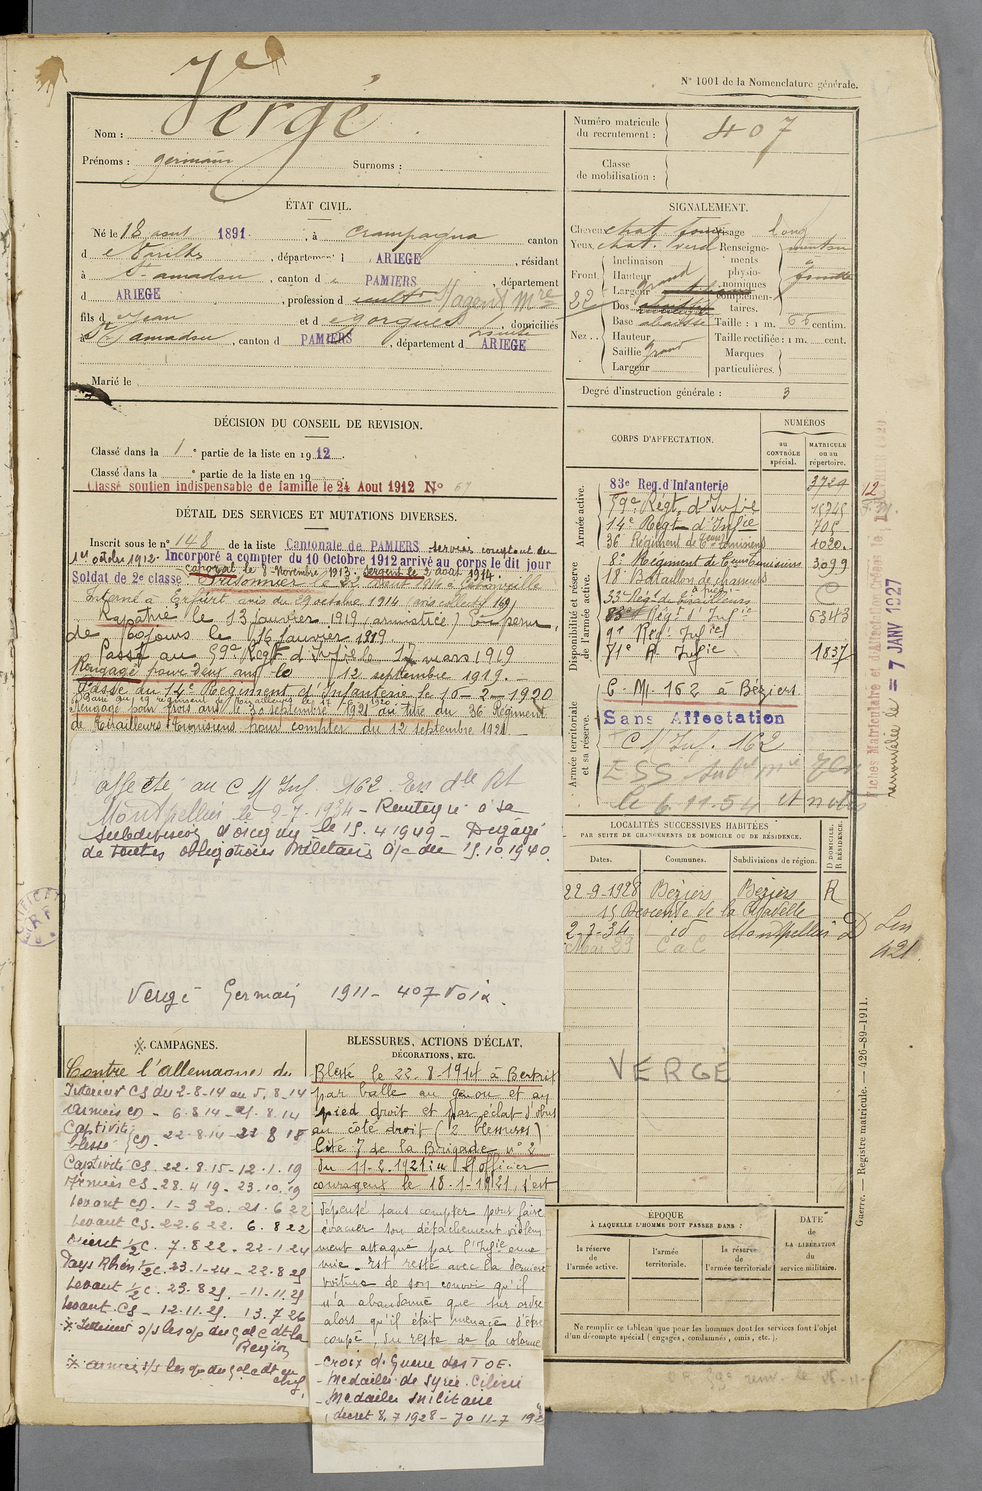 N° 1001 de la Nomenclature générale.
Nom : Vergé
Prénoms : germain Surnoms :
Numéro matricule du recrutement : 407
Classe de mobilisation :
ÉTAT CIVIL.
Né le 18 aout 1891, à Crampagna canton
d e Varilhes, département d ARIEGE, résidant
à St amadou, canton d e PAMIERS, département
d ARIEGE, profession d cultr agent Mre
fils d e Jean et d e gorgues, domiciliés
à St amadou, canton d PAMIERS, département d ARIEGE
Marié le
SIGNALEMENT.
Cheveux chat. foncé Visage long
Yeux chat. verd Renseignements physionomiques complémentaires.
Front Inclinaison
Hauteur grand
Largeur
22
Nez Dos
Base abaissé Taille : 1 m. 66 centim.
Hauteur Taille rectifiée : 1 m. cent.
Saillie grand Marques
Largeur particulières.
Degré d'instruction générale : 3
DÉCISION DU CONSEIL DE REVISION.
Classé dans la 1e partie de la liste en 1912.
Classé dans la e partie de la liste en 19
Classé soutien indispensable de famille le 24 Aout 1912 N° 67
DÉTAIL DES SERVICES ET MUTATIONS DIVERSES.
Inscrit sous le n° 148 de la liste Cantonale de PAMIERS services comptant du
1er octobre 1912. Incorporé a compter du 10 Octobre 1912 arrivé au corps le dit jour
Soldat de 2e classe caporal le 8 Novembre 1913. Sergent le 2 aout 1914.
Prisonnier le 22 aout 1914 à
Interné à Erfurt avis du 29 octobre 1914
Rapatrié le 13 janvier 1919 (armistice) En perm.
de 60 jours le 16 janvier 1919
Passé au 59e Regt d'Infie le 17 mars 1919
Rengagé pour deux ans le 12 septembre 1919.
Passé au 14e Regiment d'Infanterie le 16-2-1920
Rengagé pour trois ans le 30 septembre 1921 au titre du 36 Régiment
de Tirailleurs Tunisiens pour compter du 12 septembre 1921
affecté au C M Inf. 162 En dle Rt
Montpellier le 2-7-1934 - Renvoyé à sa
subdivision d'origine le 15.4.1949 - Dégagé
de toutes obligations militaires à/c du 15.10.1940.
Vergé Germain 1911 - 407 Foix.
CORPS D'AFFECTATION.
NUMÉROS
au CONTRÔLE spécial.
MATRICULE ou au répertoire.
Armée active.
83e Reg. d'Infanterie 3724
59e Régt d'Infie 15745
14e Régt d'Infie 705
36 Régiment de Tirailrs Tunisiens 1020.
Disponibilité et réserve de l'armée active.
8e Régiment de Tirailrs Tunisiens 3099
18 Bataillon de chasseurs à pied C
33e Régt de Tirailleurs
83e Régt d'Infie 6343
9e Regt Infie
71e R. Infie 1837
Armée territoriale et sa réserve.
C. M. 162 à Béziers
Sans Affectation
C M Inf. 162
le 6-11-54
Fiches Matriculaire et d'Affectation
renouvelée le = 7 JANV 1927
LOCALITÉS SUCCESSIVES HABITÉES
PAR SUITE DE CHANGEMENTS DE DOMICILE OU DE RÉSIDENCE.
Dates. Communes. Subdivisions de région. D DOMICILE. R RÉSIDENCE.
22-9-1928 Béziers Béziers R
15 Descente de la Citadelle
2-7-34 id Montpellier D
VERGÉ
※ CAMPAGNES.
Contre l'allemagne du
Interieur CS du 2-8-14 au 5.8-14
Armées CD - 6.8.14 - 21.8.14
Captivité blessé CD - 22-8.14 - 22 8 15
Captivité CS. 22.8.15 - 12.1.19
Armées CS - 28.4.19 - 23.10.19
Levant CD. 1-3.20. 21.6 22
Levant CS. 22.6 22. 6.8 22
1/2 C. 7.8 22. - 22-1.24
Pays Rhén 1/2 C. 23.1-24 - 22.8 25
Levant 1/2 C. 23.8 25. - 11-11.25
Levant CS - 12-11.25. 13.7 26
※ Interieur s/s les op du Gal Cdt la
Région
※ armées s/s les op du Gal Cdt en
chef.
BLESSURES, ACTIONS D'ÉCLAT,
DÉCORATIONS, ETC.
Blessé le 22.8.1914 à Bertrix
par balle au genou et au
pied droit et par éclat d'obus
au côté droit (2 blessures)
Cité à de la Brigade n° 2
du 11-2.1921 : s/officier
courageux le 18-1-1921, s'est
dépensé sans compter pour faire
évacuer son détachement violem-
ment attaqué par l'Infie enne-
mie - Est resté avec la dernière
voiture de son convoi qu'il
n'a abandonné que sur ordre
alors qu'il était menacé d'être
coupé du reste de la colonne
- Croix de Guerre des T O E.
- Medaille de Syrie. Cilicie
- Medaille militaire
décret 8.7 1928 - J O 11-7 192
ÉPOQUE
À LAQUELLE L'HOMME DOIT PASSER DANS :
la réserve de l'armée active. l'armée territoriale. la réserve de l'armée territoriale
DATE DE LA LIBÉRATION du service militaire.
Ne remplir ce tableau que pour les hommes dont les services font l'objet
d'un décompte spécial (engagés, condamnés, omis, etc.).
Guerre. — Registre matricule. — 426-89-1911.